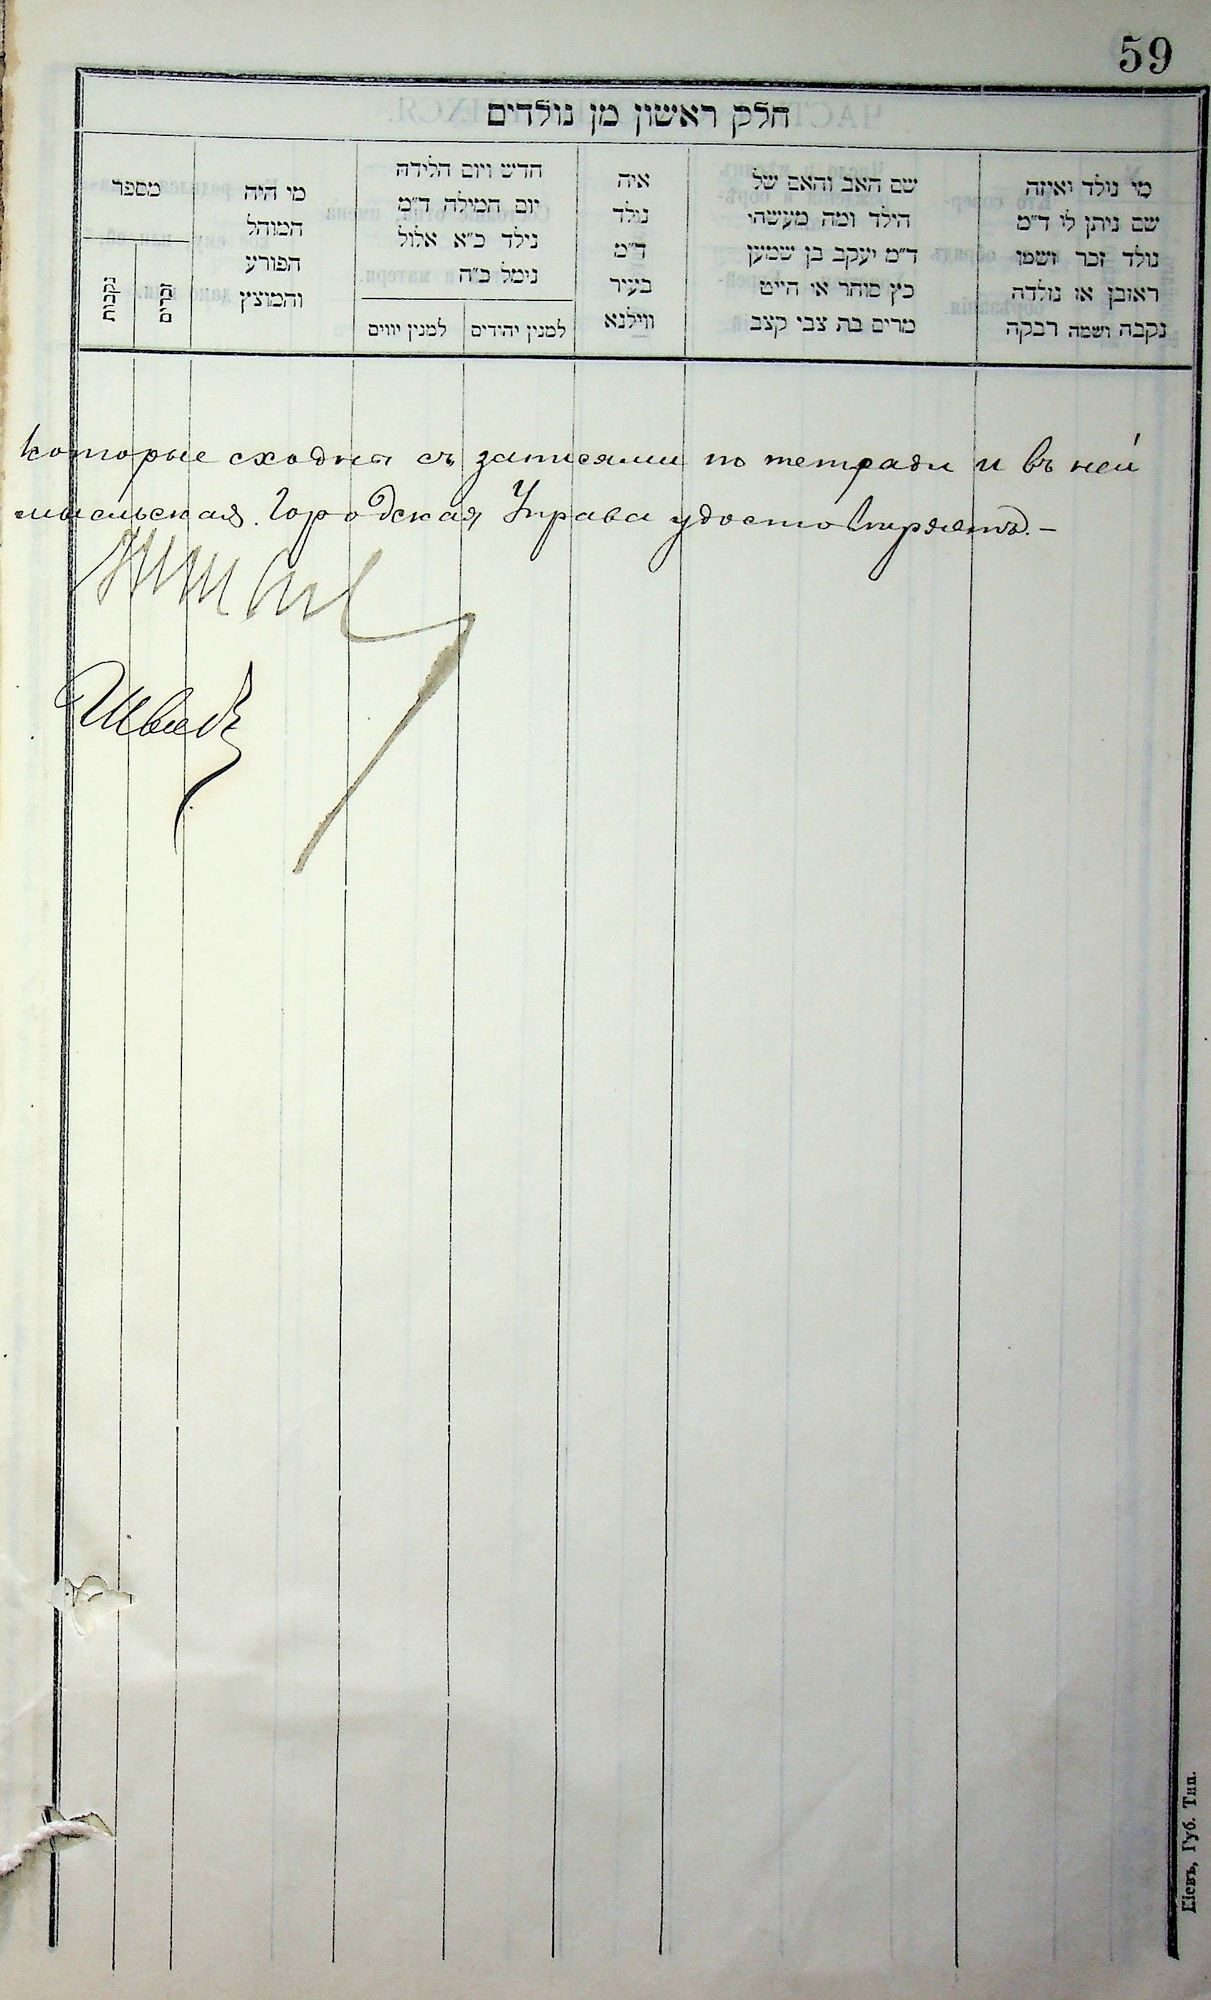 59
חלק ראשון מן נולדים
מי נולד ואיזה
שם ניתן לו ד״מ
נולד זכר ושמו
ראובן או נולדה
נקבה ושמה רבקה
שם האב והאם של
הילד ומה מעשהו
ד״מ יעקב בן שמעון
כץ סוחר או הייט
מרים בת צבי קצב
איה
נולד
ד״מ
בעיר
ווילנא
חדש ויום הלידה
יום המילה ד״מ
נילד כ״א אלול
נימל כ״ה
למנין יהודים
למנין יוונים
מי היה
המוהל
הפורע
והמוצץ
מספר
זכרים
נקבות
которые сходны съ записями по тетради и въ ней
Городская Управа удостовѣряетъ.–
Швецъ
Кіевъ, Губ. Тип.